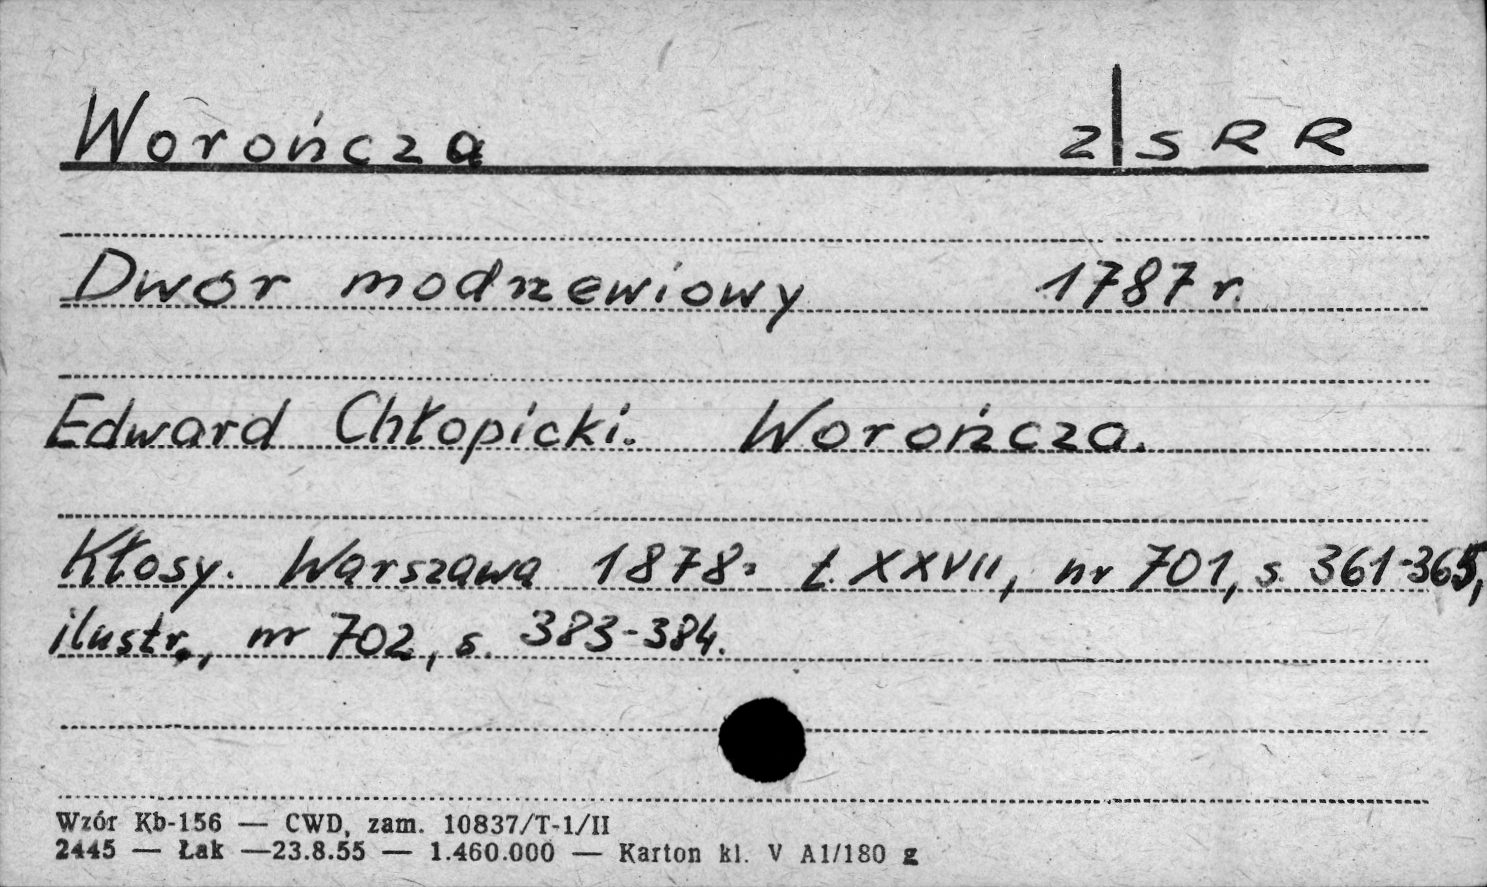 Worończa ZSRR
Dwór modrzewiowy 1787 r.
Edward Chłopicki. Worończa.
Kłosy. Warszawa 1878. t. XXVII, nr 701, s. 361-365,
ilustr., nr 702, s. 383-384.
Wzór Kb-156 — CWD, zam. 10837/T-1/II
2445 — Łak —23.8.55 — 1.460.000 — Karton kl. V A1/180 g